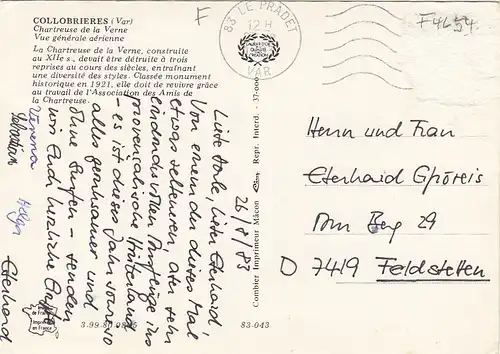 COLLOBRIERES (Var)
Chartreuse de la Verne
Vue générale aérienne
La Chartreuse de la Verne, construite
au XIIe s., devait être détruite à trois
reprises au cours des siècles, entraînant
une diversité des styles. Classée monument
historique en 1921, elle doit de revivre grâce
au travail de l'Association des Amis de
la Chartreuse.
F
83 LE PRADET
12 H
VAR
F4654
26/8/83
Liebe, lieber Eberhard,
Von einem der dieses Mal
etwas selteneren, aber sehr
eindrucksvollen Ausflüge ins
provenzalische Hinterland
- es ist dieses Jahr sowieso
alles geruhsamer und
ohne Surfen - senden
wir Euch herzliche Grüße
Verena
Sebastian
Holger
Eberhard
Combier Imprimeur Mâcon
Repr. Interd. - 37-000
Herrn und Frau
Eberhard Gpöreis
Am Berg 29
D 7419 Feldstetten
Imprimée
en France
3.99.80.0895
83-043